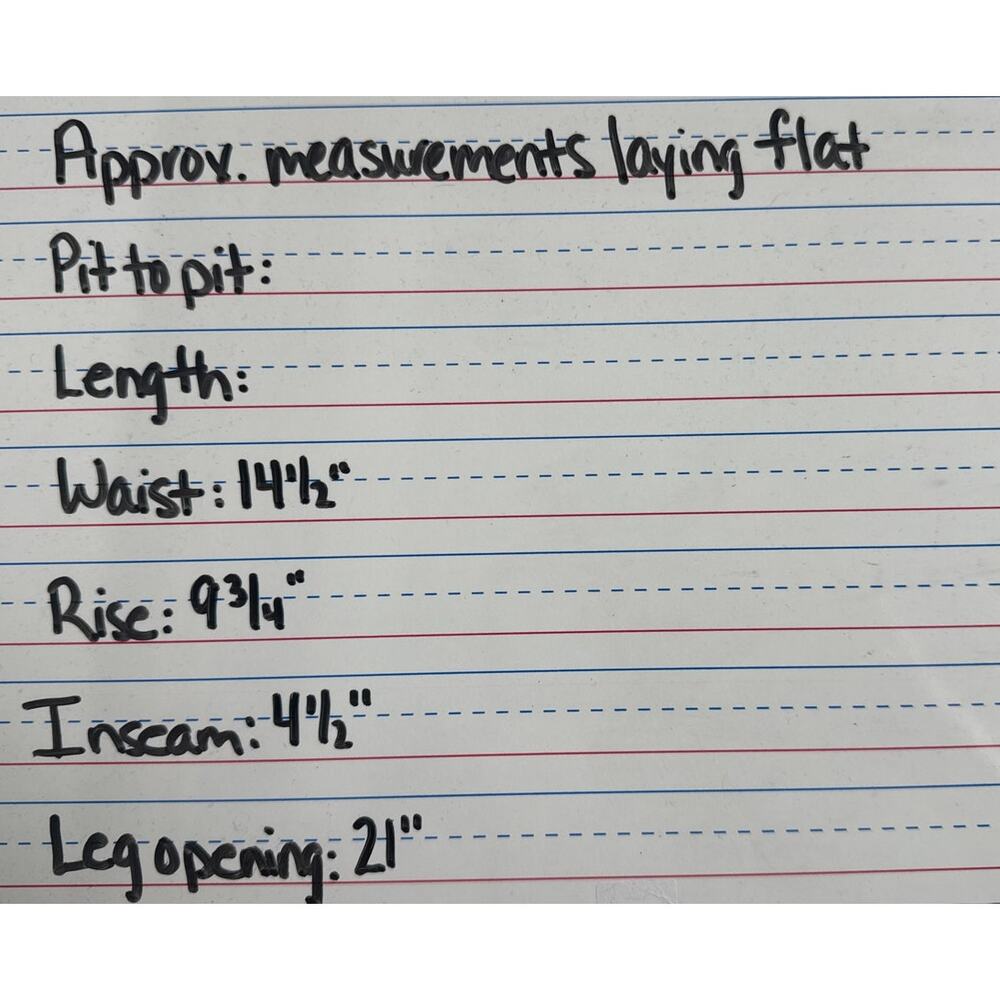 Approx. measurements laying flat
Pit to pit:
Length:
Waist: 14 1/2"
Rise: 9 3/4"
Inseam: 4 1/2"
Leg opening: 21"